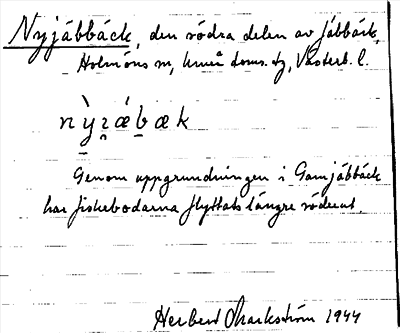 Nyjäbbäck, den södra delen av Jäbbäck,
Holmöns sn, Umeå doms. tg, Västerb. l.
nỳɪ̯ǽb̠æk
Genom uppgrundningen i Gamjäbbäck
har fiskebodarna flyttats längre söderut.
Herbert Markström 1944